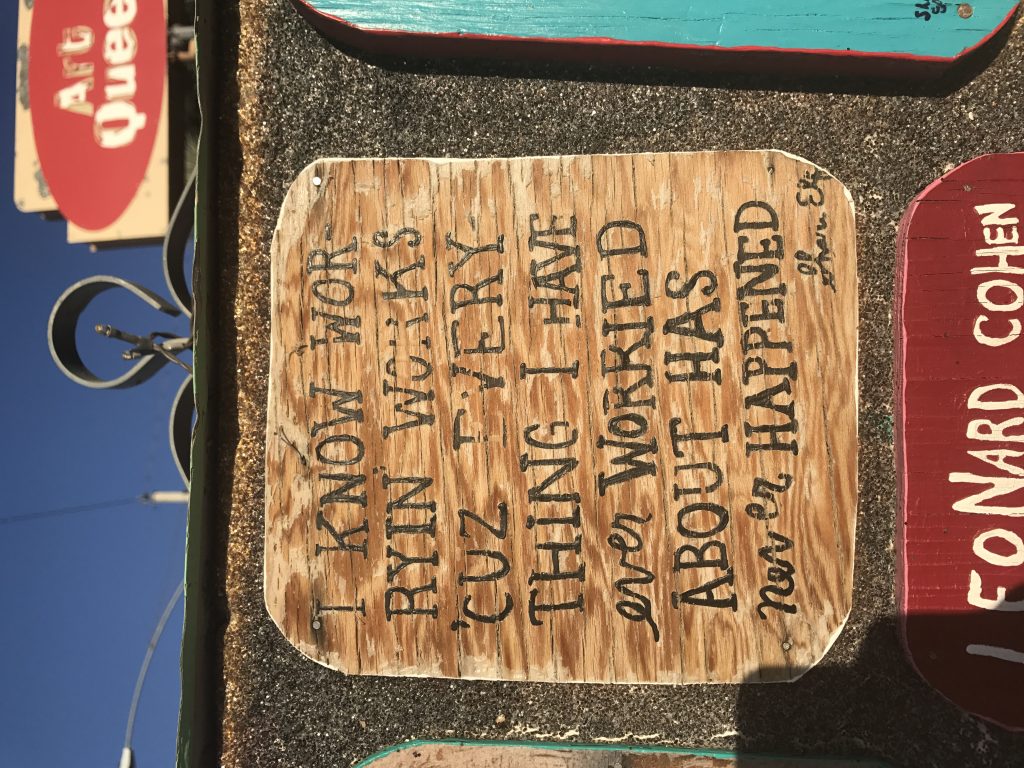 Art
Queen
I KNOW WOR-
RYIN' WORKS
'CUZ EVERY
THING I HAVE
ever WORRIED
ABOUT HAS
Never HAPPENED
LEONARD COHEN